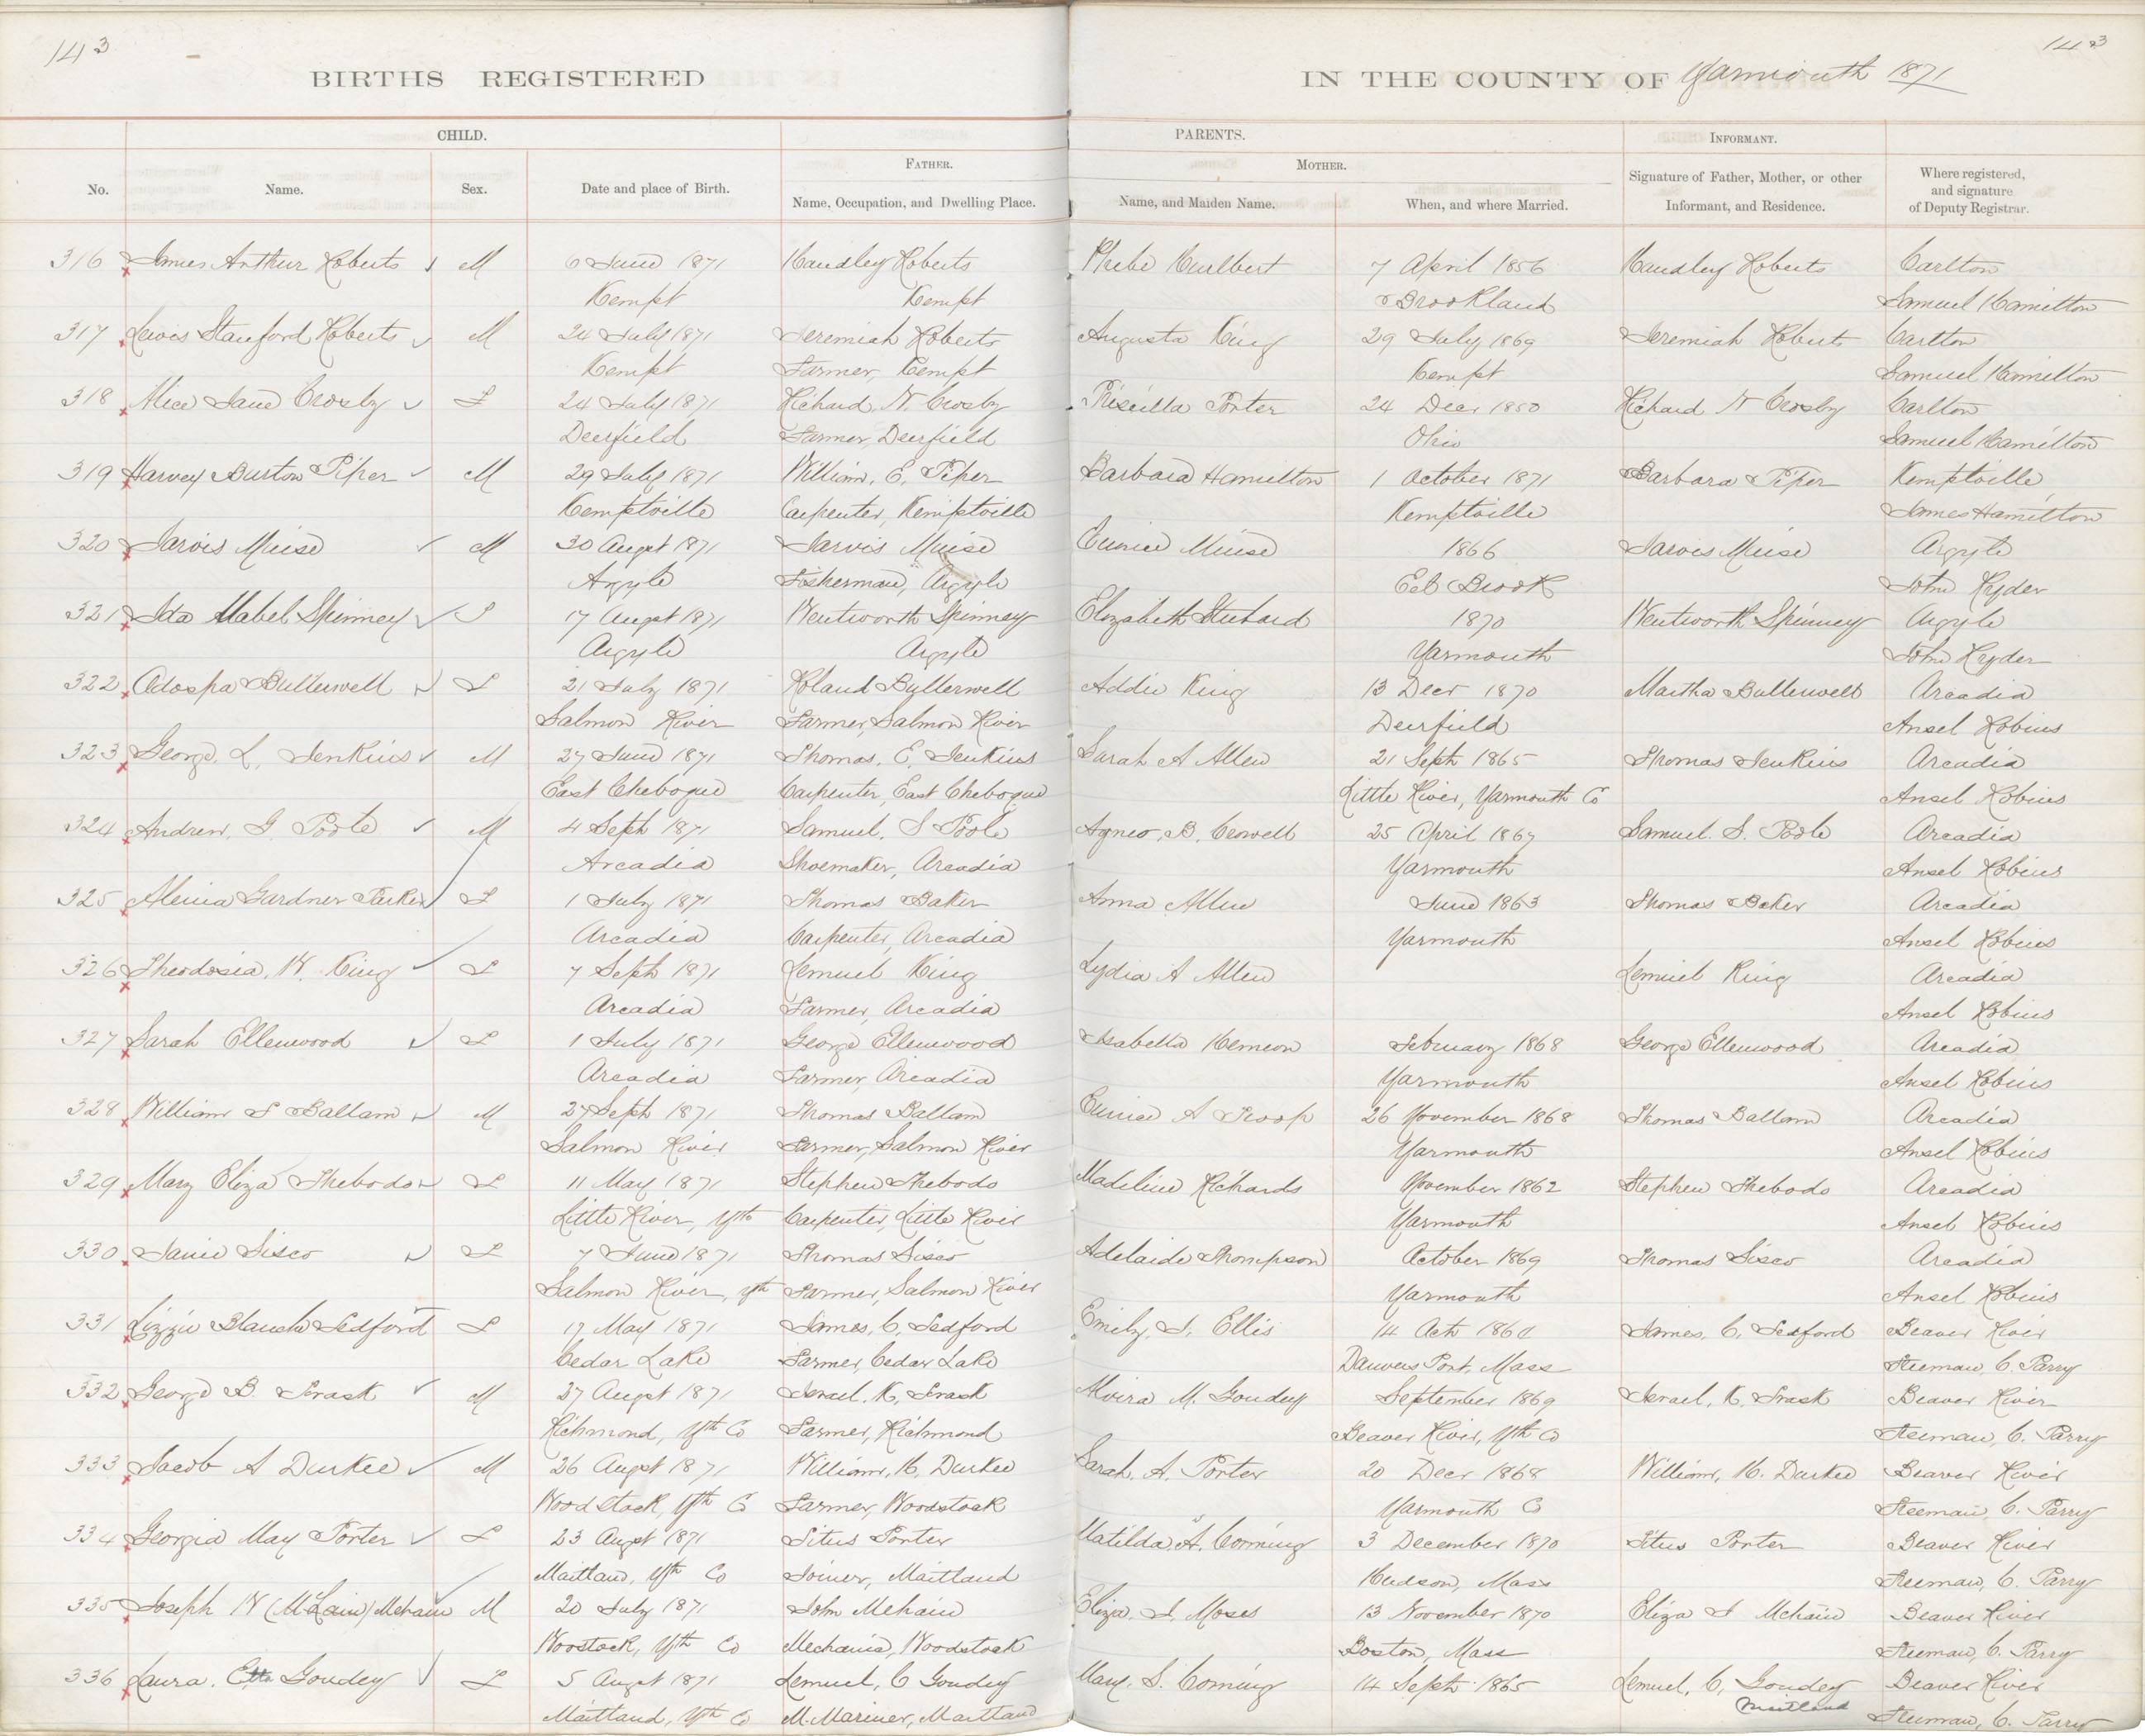 143
143
BIRTHS REGISTERED
IN THE COUNTY OF Yarmouth 1871
CHILD.
PARENTS.
INFORMANT.
FATHER.
MOTHER.
No.
Name.
Sex.
Date and place of Birth.
Name, Occupation, and Dwelling Place.
Name, and Maiden Name.
When, and where Married.
Signature of Father, Mother, or other
Informant, and Residence.
Where registered,
and signature
of Deputy Registrar.
316 James Arthur Roberts M 6 June 1871 Handley Roberts Phebe Hurlbert 7 April 1856 Handley Roberts Carlton
Kempt Kempt Brookland Samuel Hamilton
317 Lewis Stanford Roberts M 24 July 1871 Jeremiah Roberts Augusta King 29 July 1869 Jeremiah Roberts Carlton
Kempt Farmer, Kempt Kempt Samuel Hamilton
318 Alice Jane Crosby F 24 July 1871 Richard N. Crosby Priscilla Porter 24 Decr 1850 Richard N Crosby Carlton
Deerfield Farmer, Deerfield Ohio Samuel Hamilton
319 Harvey Burton Piper M 29 July 1871 William, E, Piper Barbara Hamilton 1 October 1871 Barbara Piper Kemptville
Kemptville Carpenter, Kemptville Kemptville James Hamilton
320 Jarvis Muise M 30 Augst 1871 Jarvis Muise Eunice Muise 1866 Jarvis Muise Argyle
Argyle Fisherman, Argyle Eel Brook John Ryder
321 Ida Mabel Spinney F 17 Augst 1871 Wentworth Spinney Elizabeth 1870 Wentworth Spinney Argyle
Argyle Argyle Yarmouth John Ryder
322 Butterwell F 21 July 1871 Roland Butterwell Addie King 13 Decr 1870 Martha Butterwell Arcadia
Salmon River Farmer, Salmon River Deerfield Ansel Robins
323 George, L, Jenkins M 27 June 1871 Thomas, E, Jenkins Sarah A Allen 21 Septr 1865 Thomas Jenkins Arcadia
East Chebogue Carpenter, East Chebogue Little River, Yarmouth Co Ansel Robins
324 Andrew, G Poole M 4 Septr 1871 Samuel, S Poole Agnes, B, Crowell 25 April 1867 Samuel. S. Poole Arcadia
Arcadia Shoemaker, Arcadia Yarmouth Ansel Robins
325 Gardner F 1 July 1871 Thomas Baker Anna Allen June 1863 Thomas Baker Arcadia
Arcadia Carpenter, Arcadia Yarmouth Ansel Robins
326 Theodosia, W. King F 7 Septr 1871 Lemuel King Lydia A Allen Lemuel King Arcadia
Arcadia Farmer, Arcadia Ansel Robins
327 Sarah Ellenwood F 1 July 1871 George Ellenwood Isabella Hemeon February 1868 George Ellenwood Arcadia
Arcadia Farmer, Arcadia Yarmouth Ansel Robins
328 William S Baltam M 27 Septr 1871 Thomas Baltam Eunice A Troop 26 November 1868 Thomas Baltam Arcadia
Salmon River Farmer, Salmon River Yarmouth Ansel Robins
329 Mary Eliza Thebodo F 11 May 1871 Stephen Thebodo Madeline Richards November 1862 Stephen Thebodo Arcadia
Little River, Yth Carpenter, Little River Yarmouth Ansel Robins
330 Janie Sisco F 7 June 1871 Thomas Sisco Adelaide Thompson October 1869 Thomas Sisco Arcadia
Salmon River, Yth Farmer, Salmon River Yarmouth Ansel Robins
331 Lizzie Blanche Tedford F 17 May 1871 James, C, Tedford Emily, J. Ellis 14 Octr James, C, Tedford Beaver River
Cedar Lake Farmer, Cedar Lake Danvers Port, Mass Freeman, C. Parry
332 George B. Trask M 27 Augst 1871 Israel. K, Trask Alvira M. Goudey September 1869 Israel, K, Trask Beaver River
Richmond, Yth Co Farmer, Richmond Beaver River, Yth Co Freeman, C. Parry
333 Jacob A Durkee M 26 Augst 1871 William, H, Durkee Sarah, A. Porter 20 Decr 1868 William, H. Durkee Beaver River
Woodstock, Yth Co Farmer, Woodstock Yarmouth Co Freeman, C. Parry
334 Georgia May Porter F 23 Augst 1871 Titus Porter Matilda, A, Corning 3 December 1870 Titus Porter Beaver River
Maitland, Yth Co Joiner, Maitland Hudson, Mass Freeman, C. Parry
335 Joseph W (McLain) Mehain M 20 July 1871 John Mehain Eliza, J, Moses 13 November 1870 Eliza J Mehain Beaver River
Woostock, Yth Co Mechanic, Woodstock Boston, Mass Freeman, C. Parry
336 Laura, Etta Goudey F 5 Augst 1871 Lemuel, C Goudey Mary, S. Corning 14 Septr 1865 Lemuel, C, Goudey Beaver River
Maitland, Yth Co M. Mariner, Maitland Maitland Freeman, C. Parry